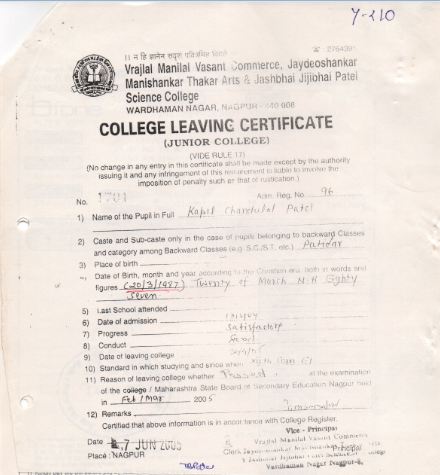 Y-210
न हि ज्ञानेन सदृशं पवित्रमिह विद्यते
☎ : 2764391
Vrajlal Manilal Vasant Commerce, Jaydeoshankar
Manishankar Thakar Arts & Jashbhai Jijiohai Patel
Science College
WARDHAMAN NAGAR, NAGPUR - 440 008
COLLEGE LEAVING CERTIFICATE
(JUNIOR COLLEGE)
(VIDE RULE 17)
(No change in any entry in this certificate shall be made except by the authority
issuing it and any infringement of this requirement is liable to involve the
imposition of penalty such as that of rustication.)
No. 1701 Adm. Reg. No. 96
1) Name of the Pupil in Full Kapil Patel
2) Caste and Sub-caste only in the case of pupils belonging to backward Classes
and category among Backward Classes (e.g. S.C./S.T. etc.) Patidar
3) Place of birth
Date of Birth, month and year according to the Christian era, both in words and
figures (20/3/1987) Twenty of March N.H Eighty
Seven
5) Last School attended
6) Date of admission
7) Progress Satisfactory
8) Conduct Good
9) Date of leaving college
10) Standard in which studying and since when
11) Reason of leaving college whether Passed at the examination
of the college / Maharashtra State Board of Secondary Education Nagpur held
in Feb / Mar 2005
12) Remarks
Certified that above information is in accordance with College Register.
Vice - Principal
Date 7 JUN 2005
Clerk Principal
Place : NAGPUR
Wardhaman Nagar Nagpur-8.